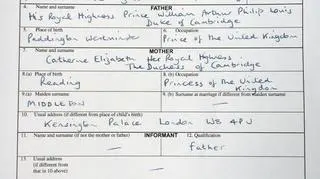 4. Name and surname FATHER
His Royal Highness Prince William Arthur Philip Louis
Duke of Cambridge
5. Place of birth 6. Occupation
Paddington Westminster Prince of the United Kingdom
7. Name and surname MOTHER
Catherine Elizabeth Her Royal Highness
The Duchess of Cambridge
8.(a) Place of birth 8.(b) Occupation
Reading Princess of the United
Kingdom
9.(a) Maiden surname 9.(b) Surname at marriage if different from maiden surname
MIDDLETON
10. Usual address (if different from place of child's birth)
Kensington Palace London W8 4PU
INFORMANT
11. Name and surname (if not the mother or father) 12. Qualification
Father
13. Usual address
(if different from that in 10 above)